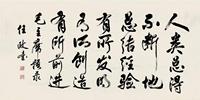 人类总得
不断地
总结经验
有所发明
有所创造
有所前进
毛主席语录
任政书